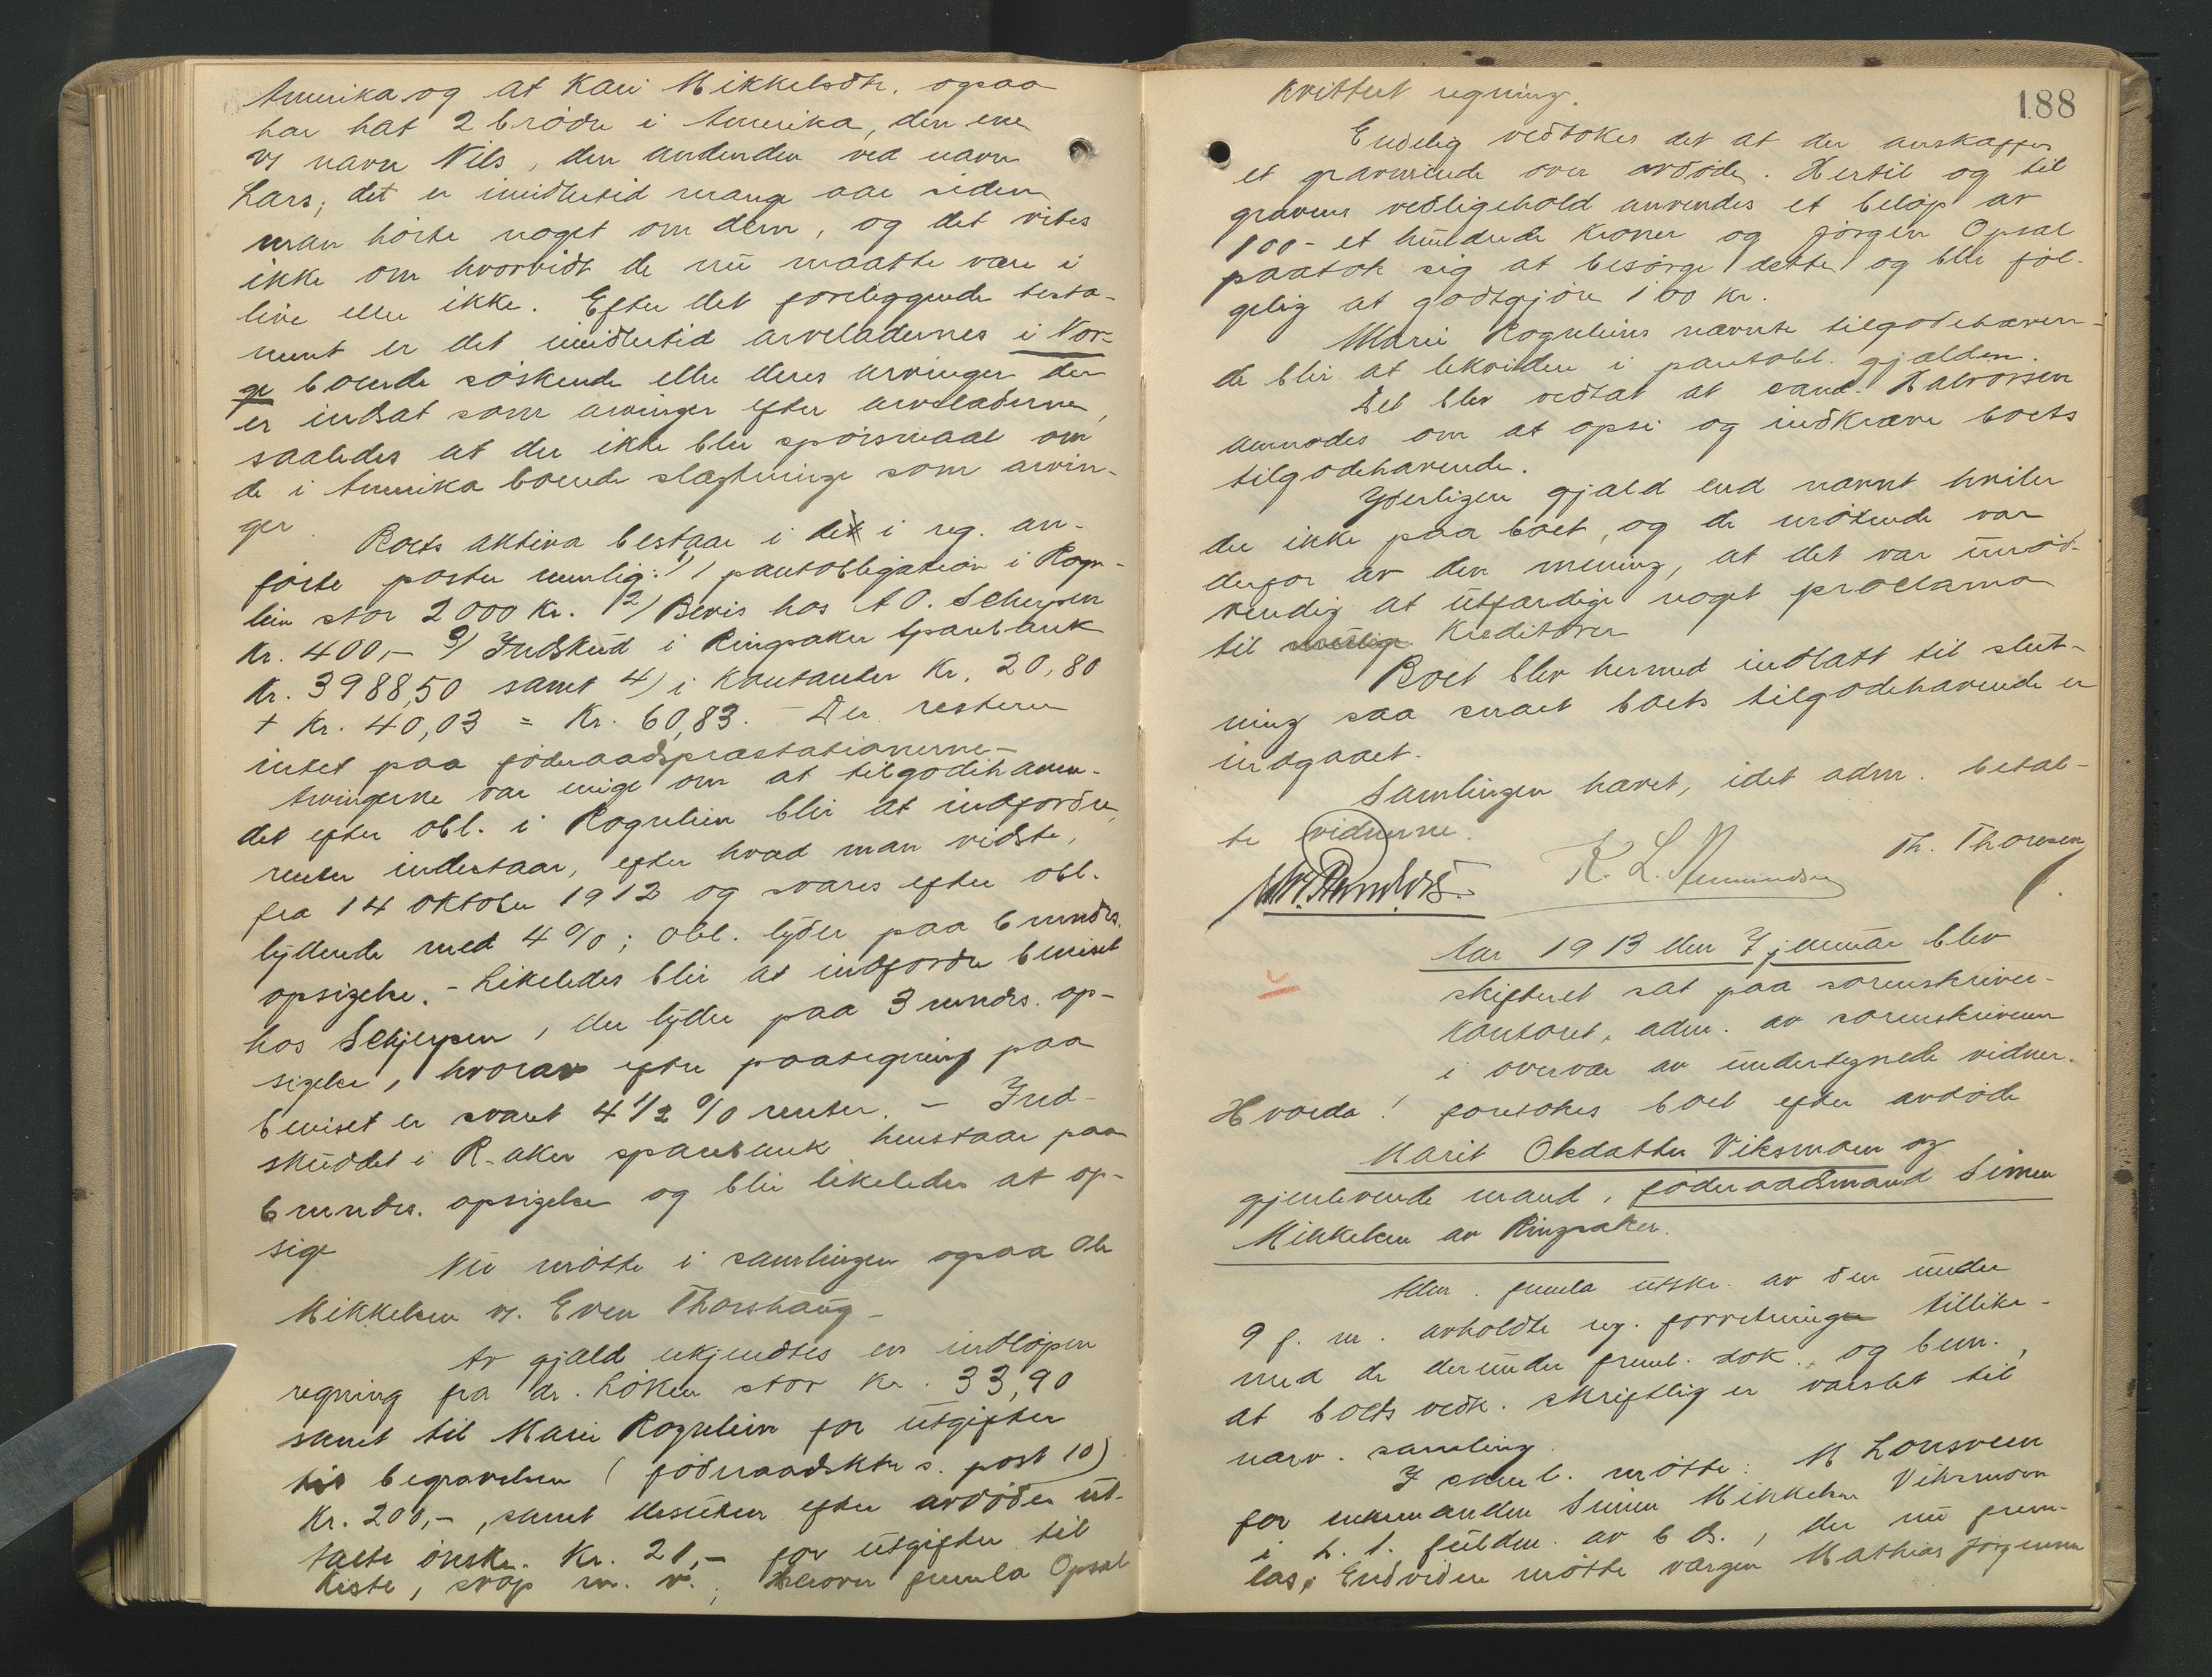 Amerika og at Kari Mikkelsdtr. ogsaa
har hat 2 brödre i Amerika, den ene
v/ navn Nils, den andenden ved navn
Lars; det er imidlertid mange aar siden
man hörte noget om dem, og det vites
ikke om hvorvidt de nu maatte være i
live eller ikke. Efter det foreliggende testa-
ment er det imidlertid arveladernes i Nor-
ge boende söskende eller deres arvinger der
er indsat som arvinger efter arveladerne,
saaledes at der ikke blir spörsmaal om
de i Amerika boende slægtninge som arvin-
ger.
Boets aktiva bestaar i de i reg. an-
förte poster nemlig: 1/ pantobligation i Rogn-
lien stor 2000 Kr. 2/ Bevis hos A O. Schjerpen
Kr. 400,- 3/ Indskud i Ringsaker Sparebank
Kr. 3988,50 samt 4/ i Kontanter Kr. 20,80
+ Kr. 40,03 = Kr. 60,83. - Der resterer
intet paa föderaadspræstationerne -
Arvingerne var enige om at tilgodehaven-
det efter obl. i Rognlien blir at indfordre,
renter indestaar, efter hvad man vidste,
fra 14 oktober 1912 og svares efter obl.
lydende med 4 %; obl. lyder paa 6 mndrs.
opsigelse. - Likeledes blir at indfordre beviset
hos Schjerpen, der lyder paa 3 mndrs. op-
sigelse, hvorav efter paategning paa
beviset er svaret 4 1/2 % renter. - Ind-
skuddet i R-aker sparebank henstaar paa
6 mndrs. opsigelse og blir likeledes at op-
sige
Nu mötte i samlingen ogsaa Ole
Mikkelsen v. Even Thorshaug -
Av gjæld erkjendtes en indlöpen
regning fra dr. Löken stor Kr. 33,90
samt til Mari Rognlien for utgifter
til begravelsen (föderaadsktr s. post 10)
Kr. 200,-, samt desuten efter avdödes ut-
talte önske Kr. 21,- for utgifter til
kiste, svöp m. v.; herover fremla Opsal
188
Kvittert regning.
Endelig vedtokes det at der anskaffes
et gravminde over avdöde. Hertil og til
gravens vedligehold anvendes et belöp av
100- et hundrede kroner og Jörgen Opsal
paatok sig at besörge dette og blir föl-
gelig at godtgjöre 100 Kr.
Mari Rognliens nævnte tilgodehaven-
de blir at likvidere i pantobl. gjælden.
Det blev vedtat at cand. Halvorsen
anmodes om at opsi og indkræve boets
tilgodehavende.
Yderligere gjæld end nævnt hviler
der ikke paa boet, og de mötende var
derfor av den mening, at det var unöd-
vendig at utfærdige noget proclama
til Kreditorer
Boet blev hermed indlatt til slut-
ning saa snart boets tilgodehavende er
indgaaet.
Samlingen hævet, idet adm. betal-
te vidnerne.
K. L. Amundsen Th. Thoresen
Aar 1913 den 7 januar blev
skifteret sat paa sorenskriver-
kontoret, adm. av sorenskriveren
i overvær av undertegnede vidner.
Hvorda! foretokes boet efter avdöde
Marit Olsdatter Viksmoen og
gjenlevende mand, föderaadsmand Simen
Mikkelsen av Ringsaker.
Adm. fremla utskr. av den under
9 f. m. avholdte reg. forretning tillike-
med de derunder freml. dok. og bem.,
at boets vedk. skriftlig er varslet til
nærv. samling.
I saml. mötte: M Lonsveen
for enkemanden Simen Mikkelsen Viksmoen
i h. t. fuldm. av d. d., der nu frem-
las. Endvidere mötte værgen Mathias Jörgensen